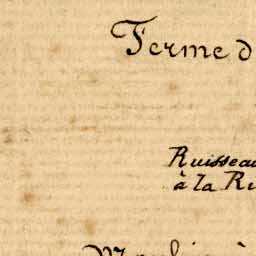 Ferme d
Ruisseau
à la Ri